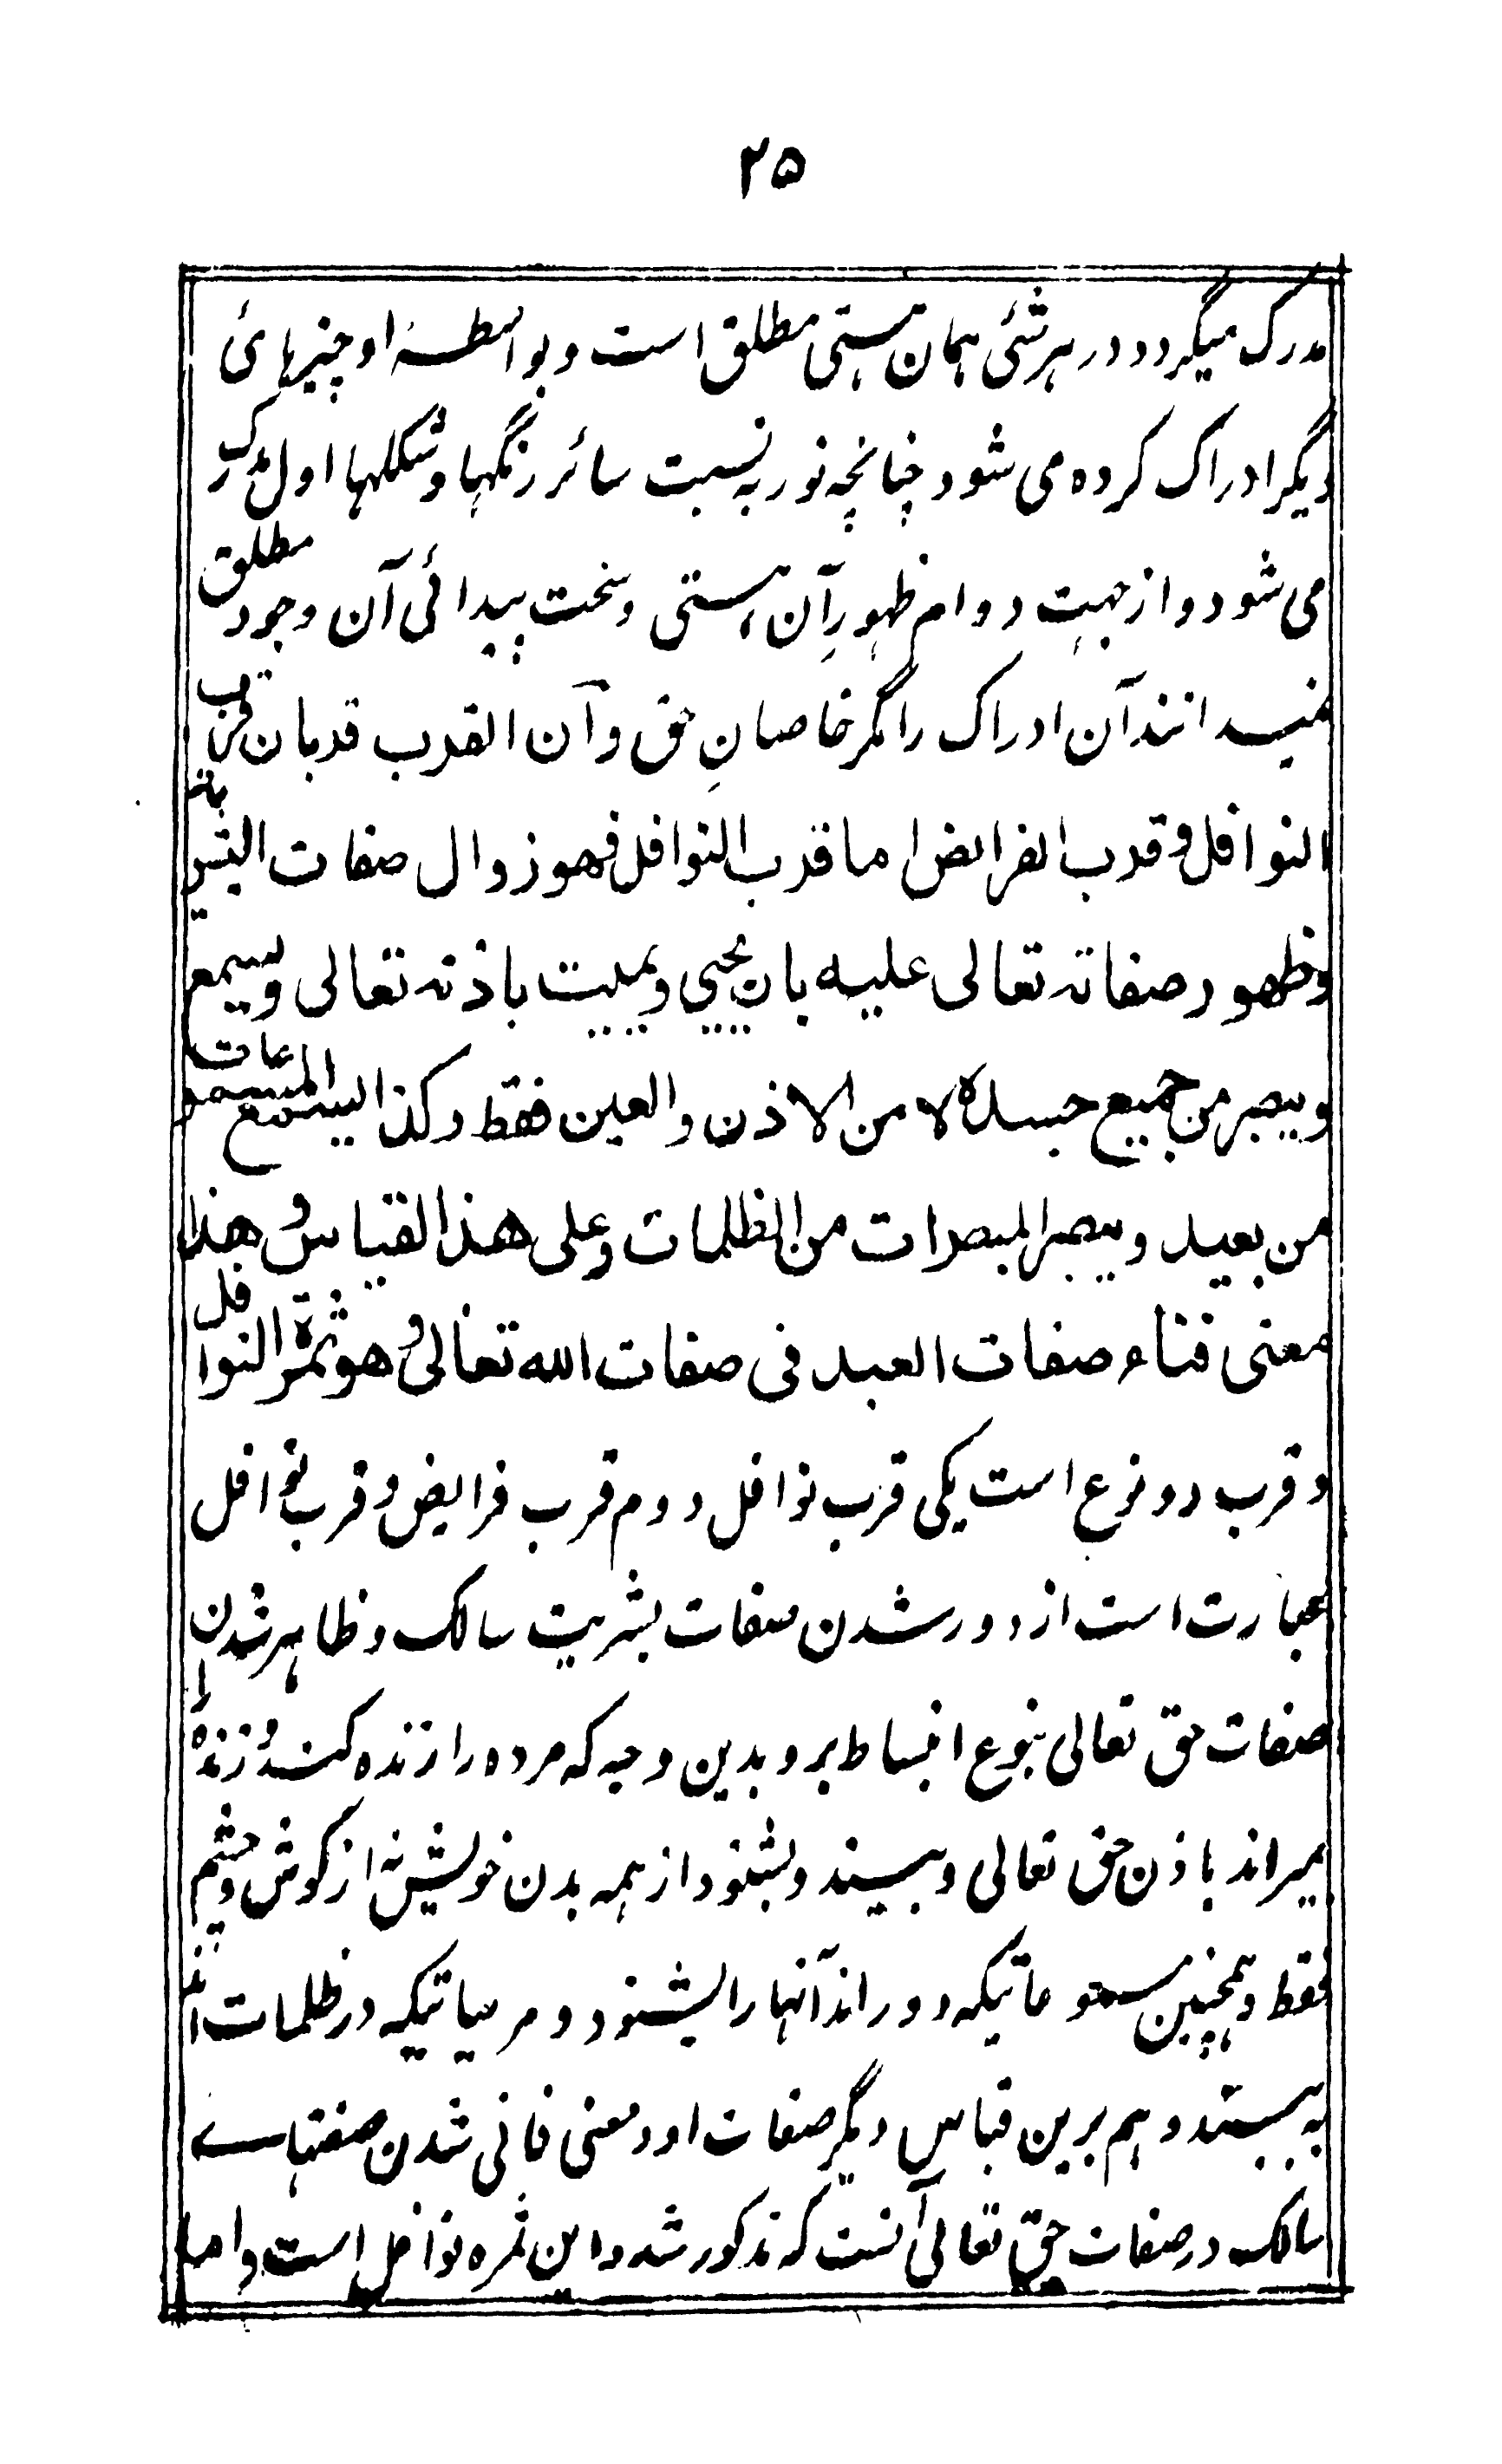 ۲۵
مدرک میگردد در هر شئی همان هستی مطلق است و بواسطۂ او چیزہائی
دیگر ادراک کرده می شود چنانچه نور به نسبت سائر رنگہا و شکلہا اول مدرک
می شود و از جہت دوام ظہورِ آن ہستی و سخت پیدائی آن وجود مطلق
نمیدانند آن ادراک را مگر خاصانِ حق و آن القرب قربان قرب
النوافل و قرب الفرائض اما قرب النوافل فهو زوال صفات البشریة
وظهور صفاته تعالی علیه بان یحیی ویمیت باذنه تعالی ویسمع
ویبصر من جمیع جسده لا من الاذن والعین فقط وکذا یسمع المسموعات
من بعید ویبصر المبصرات من الظلمات وعلی هذا القیاس وهذا
معنی فناء صفات العبد فی صفات الله تعالی وهو ثمرة النوافل
و قرب دو نوع است یکی قرب نوافل دوم قرب فرایض و قرب نوافل
عبارت است از دور شدن صفات بشریت سالک و ظاہر شدن
صفات حق تعالی بنوع انبساط برو بدین وجه که مرده را زنده کند و زنده را
بمیراند باذن حق تعالی و ببیند و بشنود از ہمه بدن خویش نه از گوش و چشم
فقط و ہمچنین مسموعاتیکه دور اند آنہا را بشنود و مرییاتیکه در ظلمات اند
به بیند و ہم برین قیاس دیگر صفات او و معنی فانی شدن صفتہاے
سالک در صفات حق تعالی آنست که مذکور شد و این ثمره نوافل است و اما